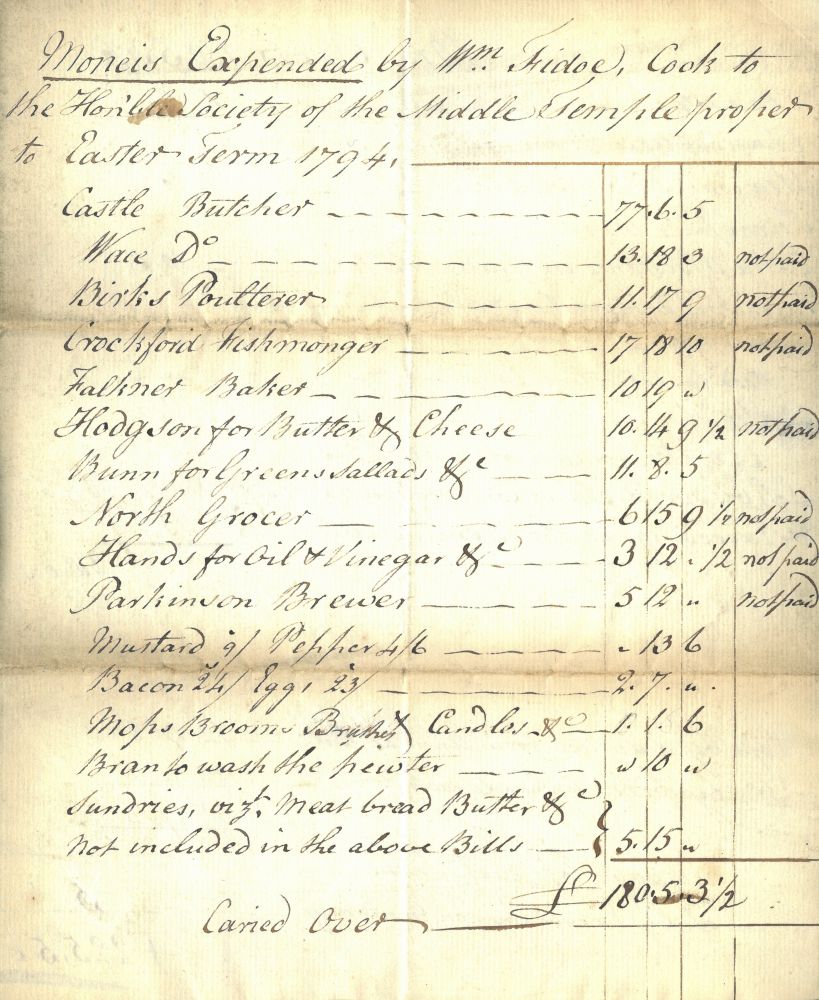 Moneis Expended by Wm. Fidoe, Cook to
the Honble Society of the Middle Temple proper
to Easter Term 1794,
Castle Butcher 77. 6. 5
Wace Do 13. 18 3 not paid
Birks Poulterer 11. 17 9 not paid
Crockford Fishmonger 17 18 10 not paid
Falkner Baker 10 19 "
Hodgson for Butter & Cheese 10. 14 9 1/2 not paid
Bunn for Greens Sallads &c 11. 8. 5
North Grocer 6 15 9 1/2 not paid
Hands for Oil & Vinegar &c 3 12 " 1/2 not paid
Parkinson Brewer 5 12 " not paid
Mustard 9/ Pepper 4/6 " 13 6
Bacon 24/ Eggs 23/ 2. 7. "
Mops Brooms Brushes & Candles &c 1. 1. 6
Bran to wash the pewter " 10 "
Sundries, vizt. Meat bread Butter &c
not included in the above Bills 5. 15 "
£ 180. 5. 3 1/2
Caried Over